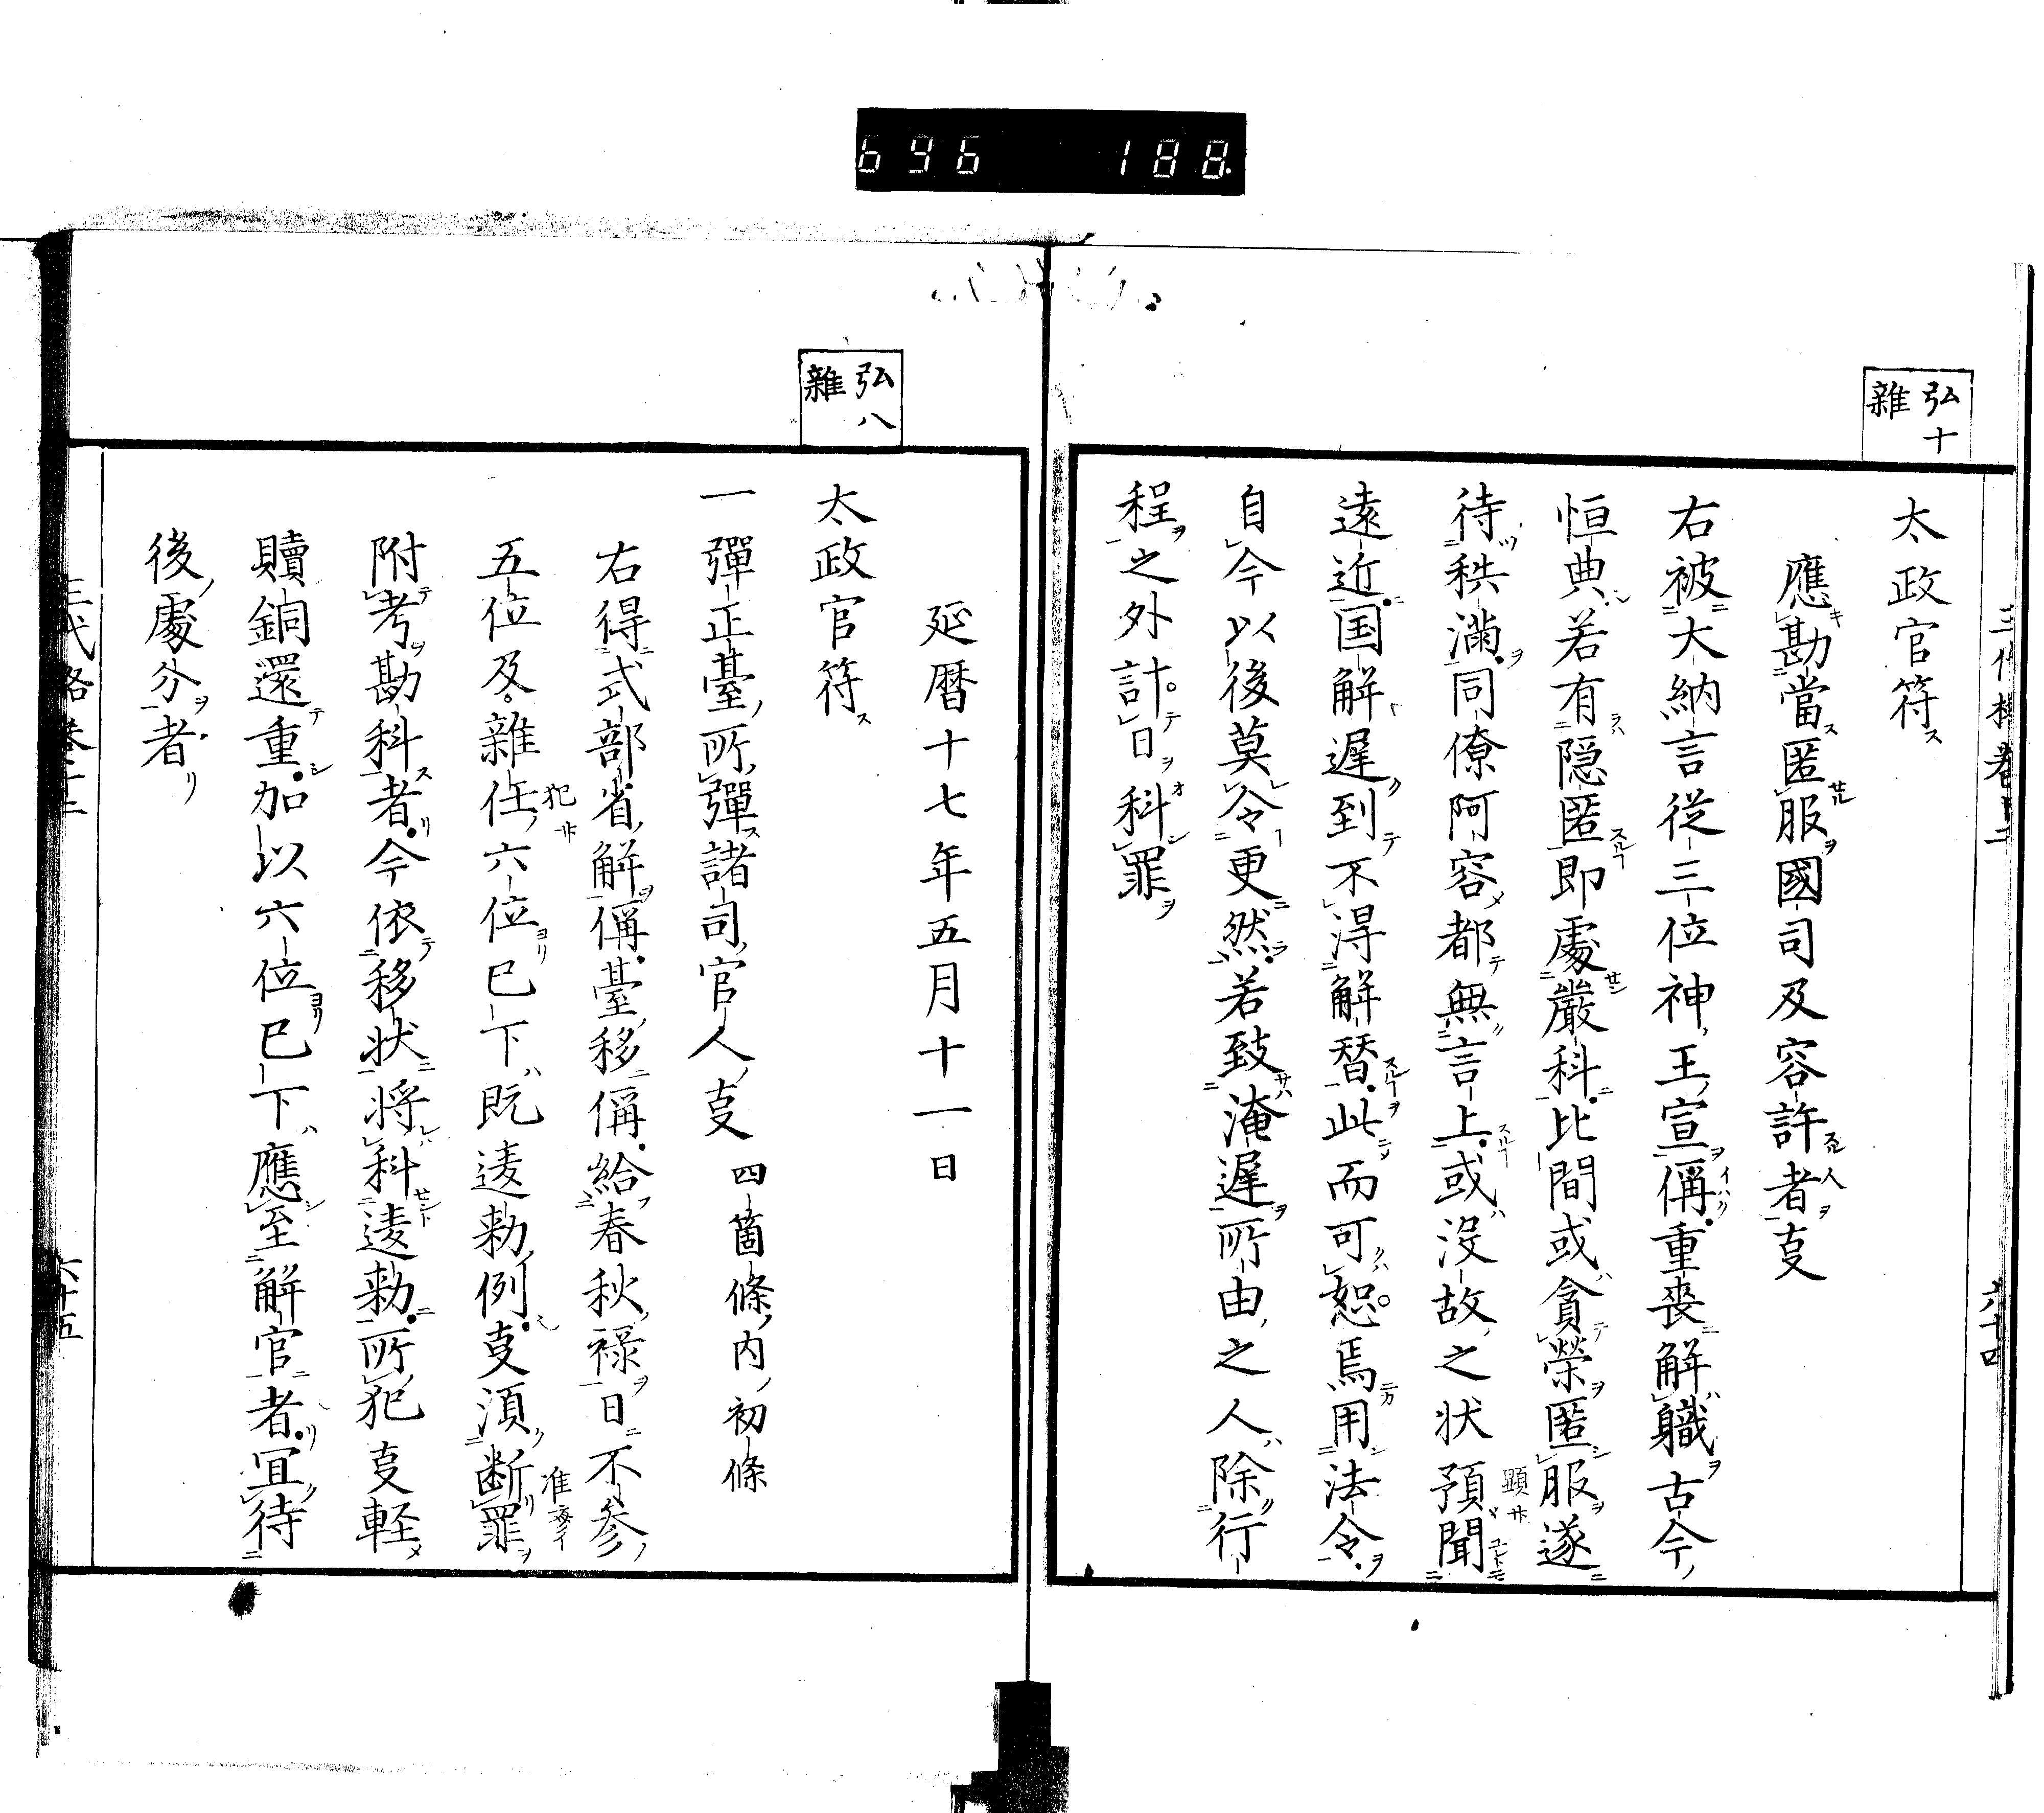 696 188
弘十
雜
太政官符ス
應キ勘當ス匿セル服ヲ國司及容許スル者人ヲ叓
右被大納言從三位神王宣偁重喪解職古今
恒典若有隠匿即處嚴科比間或貪榮匿服遂
待秩滿同僚阿容都無言上或没故之状預聞
顕サ
遠近国解遲到不淂解替此而可恕焉用法令
自今以後莫令更然若致淹遲所由之人除行
程之外計日科罪
弘八
雜
延暦十七年五月十一日
太政官符ス
一彈正臺所彈諸司官人叓 四箇條内初條
右得式部省解偁臺移偁給春秋禄日不參
五位及雜任六位已下既違勅例叓湏断罪
犯サ
准
附考勘科者今依移状将科違勅所犯叓軽
贖銅還重加以六位已下應至解官者宜待
後處分者
六十五